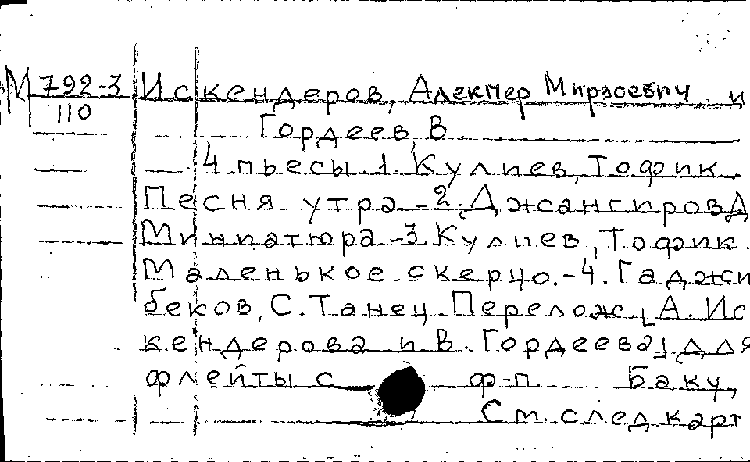 М 792-3 Искендеров, Алекпер Мирзоевич и
110 Гордеев, В
4 пьесы 1. Кулиев, Тофик.
Песня утра -2. Джангиров Д
Миниатюра -3. Кулиев, Тофик.
Маленькое скерцо. -4. Гаджи
беков, С. Танец. Перелож. А. Ис
кендерова и В. Гордеева, для
флейты с ф-п Баку,
См. след. карт